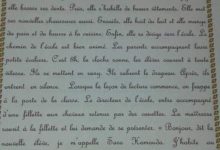 elle brosse ses dents. Puis, elle s'habille de beaux vêtements. Elle met
ses nouvelles chaussures aussi. Ensuite, elle boit du lait et elle mange
du pain et du beurre à la cuisine. Enfin, elle se dirige vers l'école. Le
chemin de l'école est bien animé. Les parents accompagnent leurs
petits écoliers. C'est 8h, la cloche sonne, les élèves courent à toute
vitesse. Ils se mettent en rang. Ils saluent le drapeau. Après, ils
entrent en silence. Lorsque la leçon de lecture commence, on frappe
à la porte de la classe. Le directeur de l'école, entre accompagné
d'une fillette aux cheveux retenus par des couettes. La maîtresse
sourit à la fillette et lui demande de se présenter. « Bonjour, je suis la
nouvelle élève, je m'appelle Sara Hamouda. J'habite au